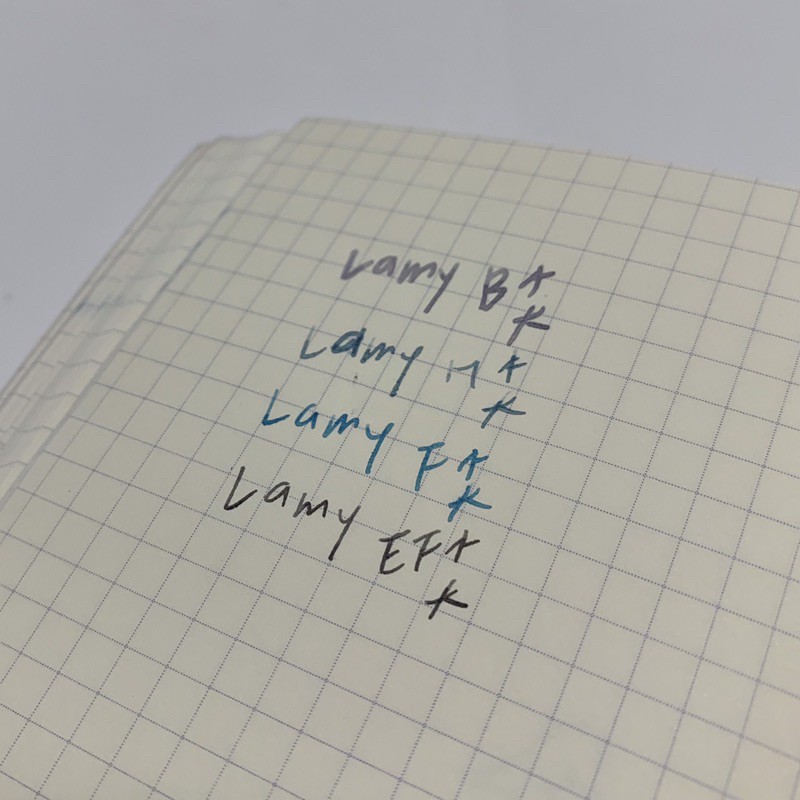 Lamy B尖
Lamy M尖
Lamy F尖
Lamy EF尖